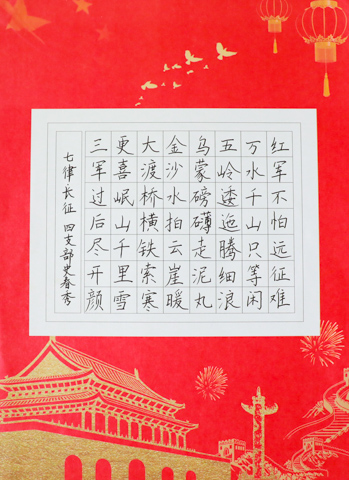 红军不怕远征难
万水千山只等闲
五岭逶迤腾细浪
乌蒙磅礴走泥丸
金沙水拍云崖暖
大渡桥横铁索寒
更喜岷山千里雪
三军过后尽开颜
七律长征 四支部史春秀